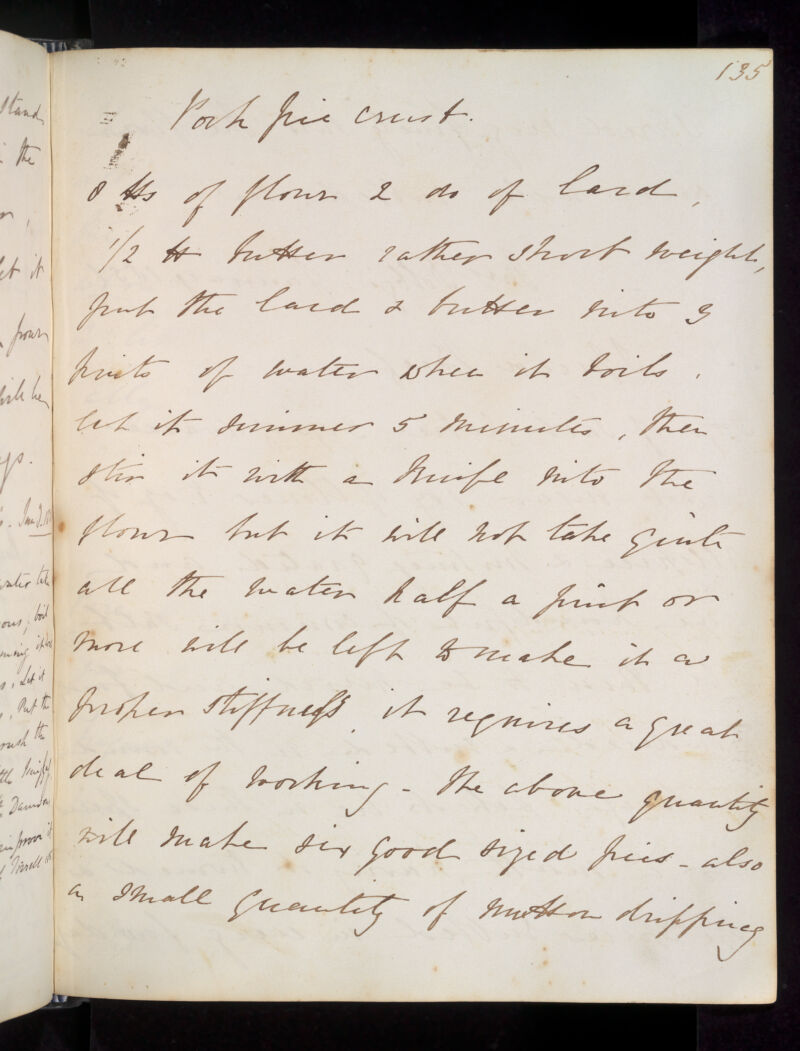 135
Pork pie crust.
8 lbs of flour 2 do of lard,
1/2 lb butter rather short weight,
put the lard & butter into 3
pints of water when it boils.
let it simmer 5 minutes, then
stir it with a knife into the
flour but it will not take quite
all the water half a pint or
more will be left to make it a
proper stiffness it requires a great
deal of working - the above quantity
will make six good sized pies - also
a small quantity of mutton dripping
stand
the
let it
pour
boil
Let it
Put the
crush the
improve it